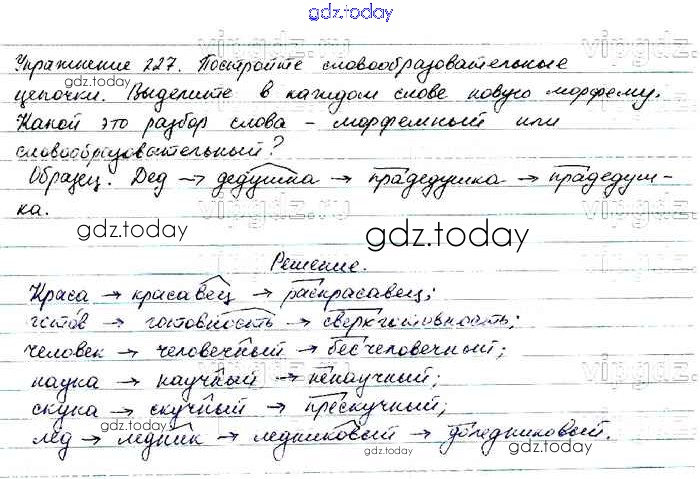 gdz.today
Упражнение 227. Постройте словообразовательные
gdz.today
цепочки. Выделите в каждом слове новую морфему.
Какой это разбор слова – морфемный или
словообразовательный?
gdz.today
Образец. Дед → дедушка → прадедушка → прадедуш-
ка.
gdz.today
gdz.today
Решение.
Краса → красавец → раскрасавец;
готов → готовность → сверхготовность;
gdz.today
человек → человечный → бесчеловечный;
наука → научный → ненаучный;
скука → скучный → прескучный;
gdz.today
лёд → ледник → ледниковый → доледниковый.
gdz.today
vipgdz.ru
vipgdz.ru
vipgdz.ru
vipgdz.ru